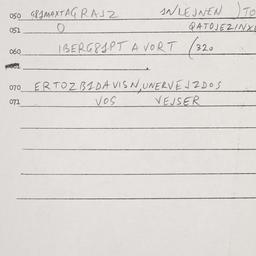 050 G81MOXTAGRAJZ 1NLEJNEN )TO
051 O QATOJEZINX
060 IBERG81PT AVORT (320
070 ERTOZB1DAVISN,UNERVEJZDOS
071 VOS VEJSER